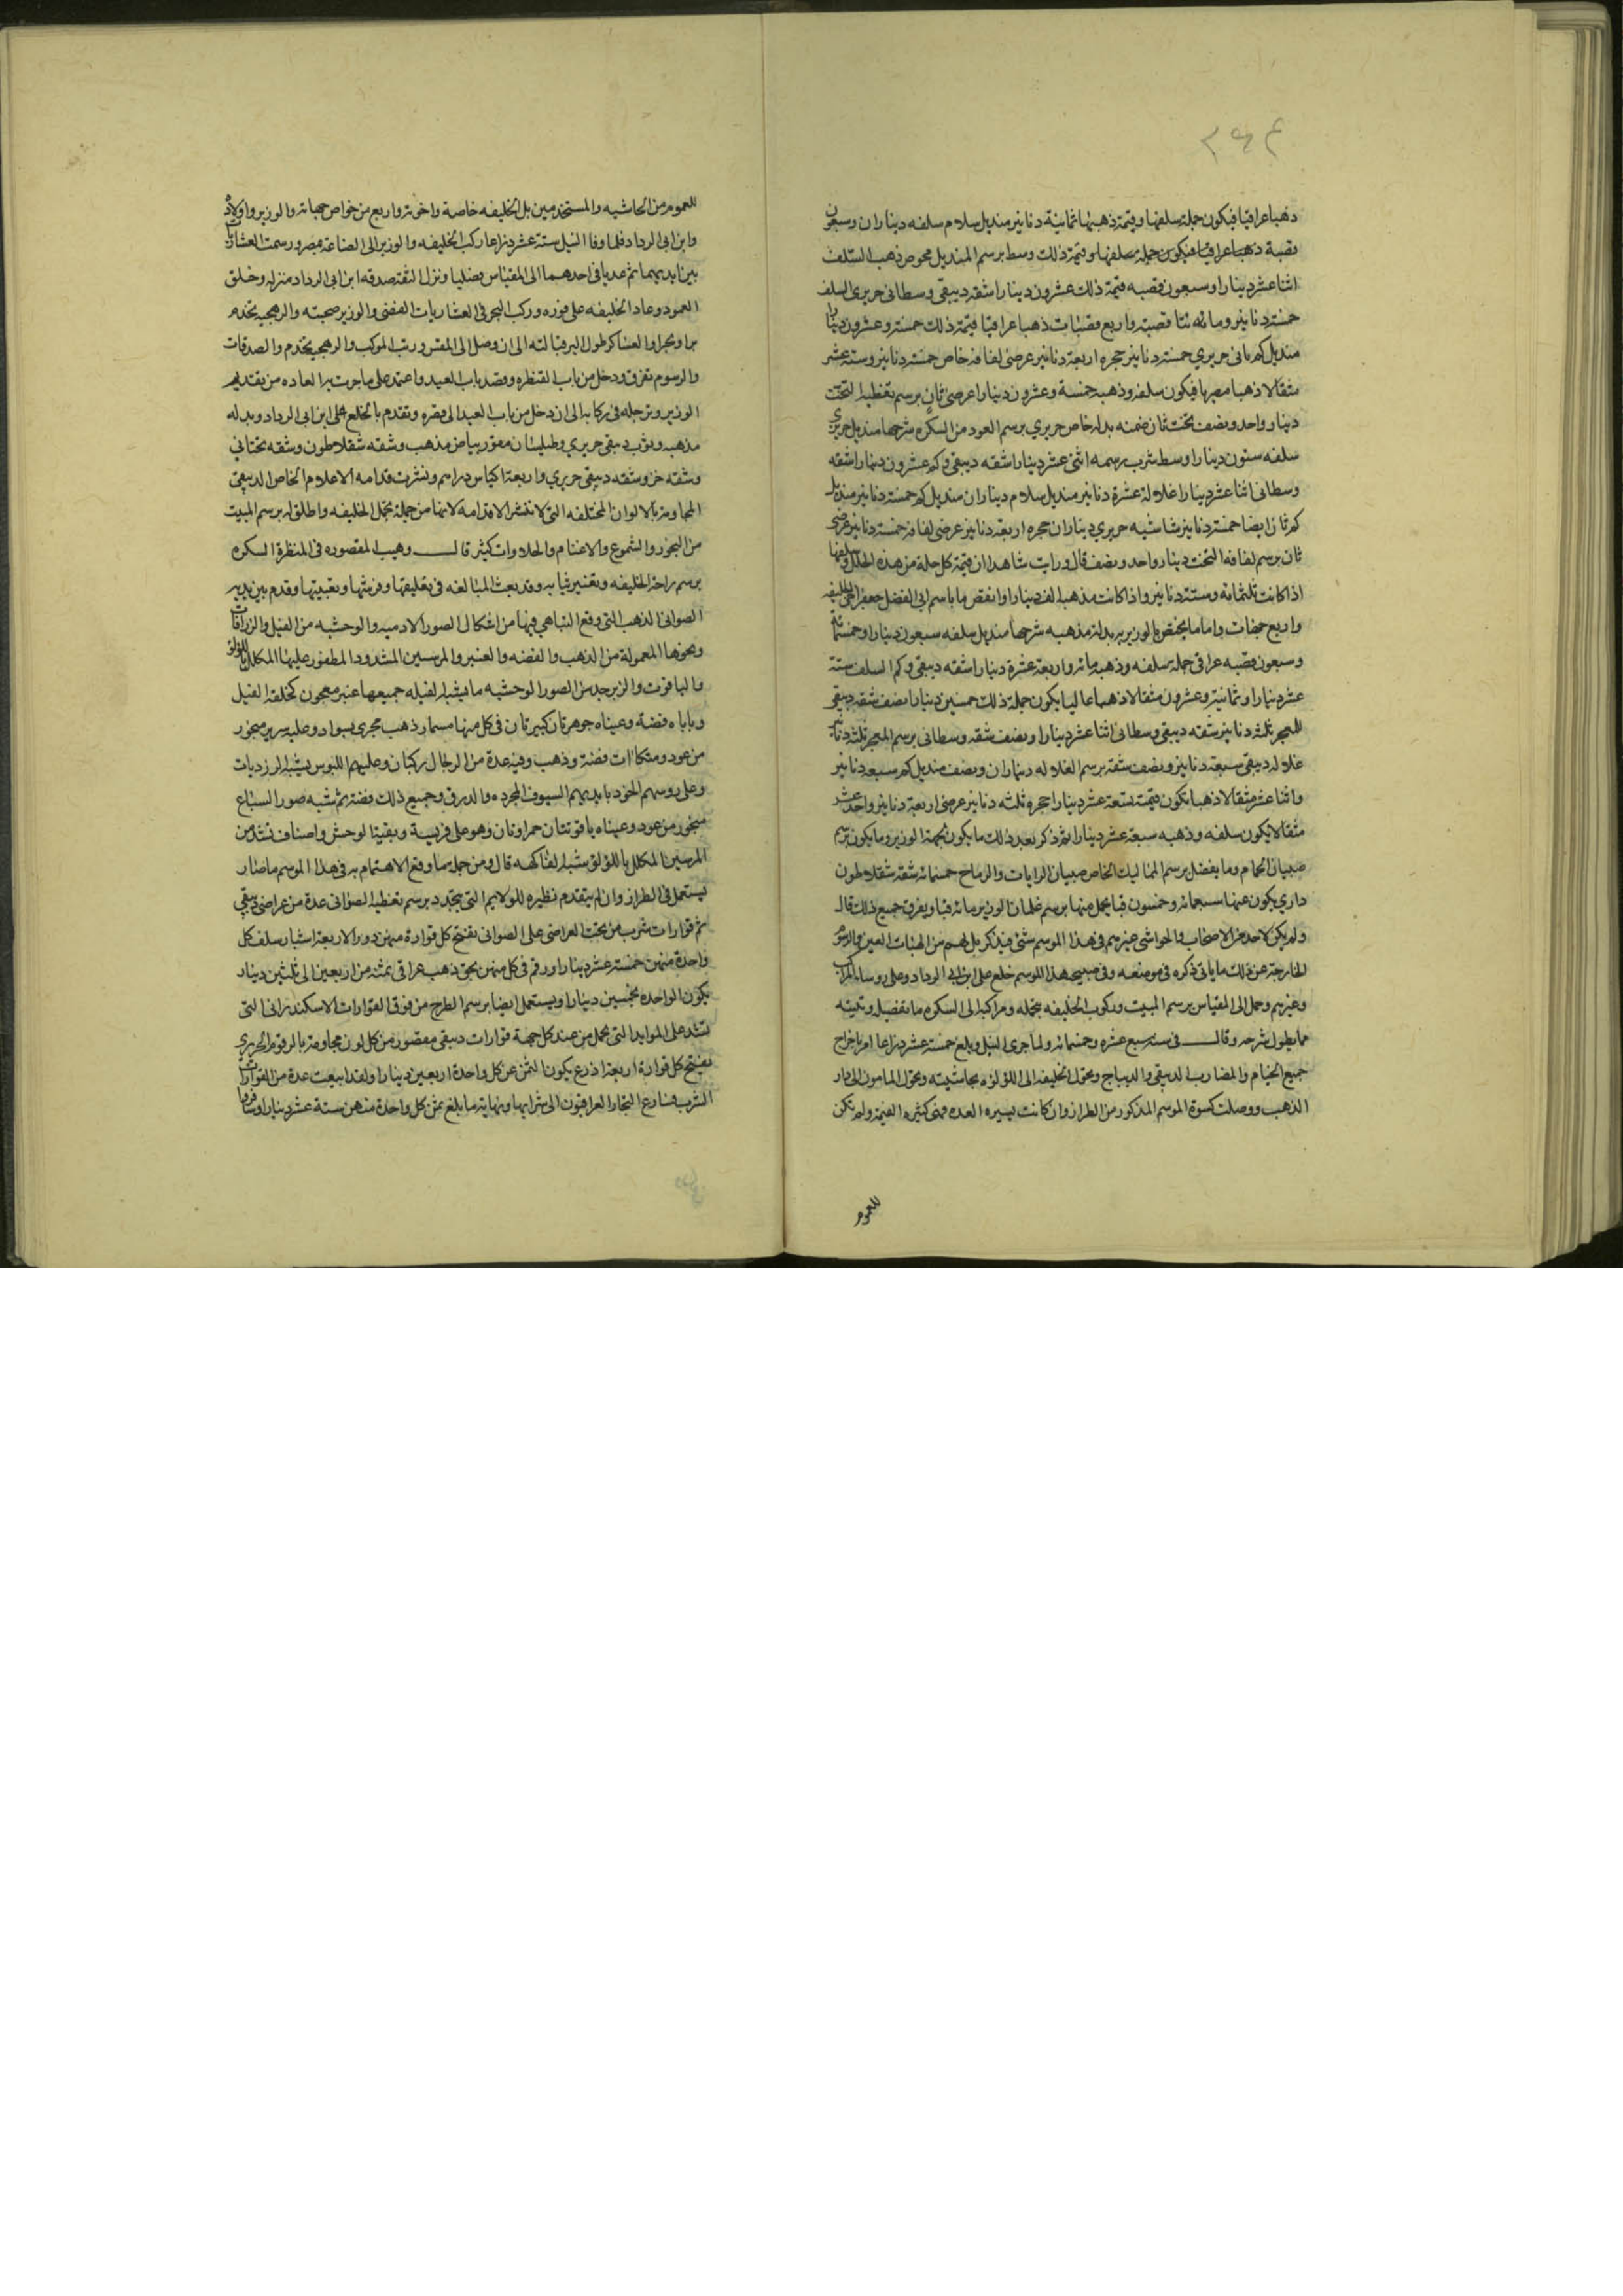 ٢٩٤
ذهبا عراقيا فيكون جملة سلفها وقيمة ذهبها ثمانية دنانير منديل سلام سلفه ديناران وسبعون
قصبة ذهبا عراقيا فيكون جملة سلفها وقيمة ذلك وسط برسم المنديل بحوص ذهب السلف
اثنا عشر دينارا وسبعون قصبه قيمة ذلك عشرون دينارا شقه دبيقى وسطانى حريرى السلف
خمسة دنانير ومائه قصبة واربع قصبات ذهبا عراقيا قيمة ذلك خمسة وعشرون دينارا
منديل كم ثانى حريري خمسة دنانير حجره اربعة دنانير عرضى لفافه خاص خمسة دنانير وستة عشر
مثقالا ذهبا مصريا فيكون سلفه وذهبه خمسة وعشرون دينارا عرضى ثان برسم تغطية التخت
دينار واحد ونصف تخت ثان ضمنه بدله خاص حريري برسم العود من السكره شرحها منديل حريري
سلفه ستون دينارا وسط شرب برسمه اثنى عشر دينارا شقه دبيقى وكم عشرون دينارا شقه
وسطانى اثنا عشر دينارا غلالة عشرة دنانير منديل سلام ديناران منديل كم خمسة دنانير منديل
كم ثان ايضا خمسة دنانير شاشيه حريري ديناران حجره اربعة دنانير عرضى لفافه خمسة دنانير عرضى
ثان برسم لفافه التخت دينار واحد ونصف قال ورايت شاهدا ان قيمة كل حلة من هذه الحلل وسلفها
اذا كانت ثلثمائه وستة دنانير واذا كانت مذهبه الف دينارا وانقص ما باسم ابى الفضل جعفر اخى الخليفه
واربع جهات واما ما يختص بالوزير بدلة مذهبه شرحها منديل سلفه سبعون دينارا وخمسمائة
وسبعون قصبه عراقى جملة سلفه وذهبه مائه واربعة عشرة دينارا شقه دبيقى وكم السلف ستة
عشر دينارا وثمانية وعشرون مثقالا ذهبا عاليا يكون جملة ذلك خمسين دينارا نصف شقه دبيقى
للمعجر ثلثه دنانير شقه دبيقى وسطانى اثنا عشر دينارا ونصف شقه وسطانى برسم المعجر ثلثه دنانير
غلاله دبيقى سبعة دنانير ونصف شقة برسم الغلاله ديناران ونصف منديل كم سبعة دنانير
واثنا عشر مثقالا ذهبا تكون قيمته تسعة عشر دينارا حجره ثلثه دنانير عرضى اربعة دنانير واحد عشر
مثقالا يكون سلفه وذهبه سبعة عشر دينارا ثم ذكر بعد ذلك ما يكون لجهة الوزير وما يكون برسم
صبيان الحمام وما يفصل برسم المماليك الخاص صبيان الرايات والرماح خمسمائه شقه شقلاطون
داري يكون عنها سبعمائه وخمسون قبا يحمل منها برسم غلمان الوزير مائه قبا ويفرق جميع ذلك قال
ولم يكن لاحد من الاصحاب والحواشى وغيرهم فى هذا الموسم شئ فيذكر بل لهم من الهبات العين والرسوم
الخارجة عن ذلك ما ياتى ذكره فى موضعه وفى صبيحة هذا الموسم خلع على ابن ابى الرداد وعلى روساء المراكب
وغيرهم وحمل الى المقياس برسم المبيت وركوب الخليفه بتجمله ومراكبه الى السكره ما تفصيله وتبيينه
مما يطول شرحه وقال فى سنه سبع عشره وخمسمائه ولما جرى النيل وبلغ خمسة عشر ذراعا امر باخراج
جميع الخيام والمضارب الدبيقى والديباج وتحول الخليفه الى اللؤلؤه بحاشيته وتحول المامون الى دار
الذهب ووصلت كسوة الموسم المذكور من الطراز وان كانت يسيره العده فهى كثيره القيمه ولم تكن
للعموم
للعموم من الحاشيه والمستخدمين بل الخليفه خاصة واخوته واربع من خواص جهاته والوزير واولاده
وابن ابى الرداد فلما وفا النيل ستة عشر ذراعا ركب الخليفه والوزير الى الصناعة بمصر ورسمت العشاريات
بين ايديهما ثم عديا فى احدهما الى المقياس فصليا ونزل الثقة صدقه ابن ابى الرداد منزله وخلق
العمود وعاد الخليفه على فوره وركب البحر فى العشاريات الفضى والوزير صحبته والرهجيه تخدم
برا وبحرا والعساكر طول البر قبالته الى ان وصل الى المقس ورتب الموكب والرهجيه تخدم والصدقات
والرسوم تفرق ودخل من باب القنطره وقصد باب العيد واعتمد على ما جرت به العاده من تقديم
الوزير وترجله فى ركابه الى ان دخل من باب العيد الى قصره وتقدم بالخلع على ابن ابى الرداد وبدله
مذهبه وثوب دبيقى حريري وطيلسان مقور بياض مذهب وشقه سقلاطون وشقه تحتانى
وشقه خز وشقه دبيقى حريري واربعة اكياس دراهم ونشرت قدامه الاعلام الخاص الدبيقى
المحاومة بالالوان المختلفه التى لا تنشر الا قدامه لانها من جملة تجمل الخليفه واطلق له برسم المبيت
من البخور والشموع والاغنام والحلاوات كثير قال وهيب المقصوره فى المنظرة السكره
برسم راحة الخليفه وتغيير ثيابه وقد بعث المبالغه فى تعليقها وفرشها وتعبيتها وقدم بين يديه
الصوانى الذهب التى وقع التباهى فيها من اشكال الصور الادميه والوحشيه من الفيل والزرافات
ونحوها المعمولة من الذهب والفضه والعنبر والمرسين المشدود المظفور عليها المكلل باللؤلؤ
والياقوت والزبرجد من الصور الوحشيه ما يشبه الفيله جميعها عنبر معجون كخلقة الفيل
وناباه فضه وعيناه جوهرتان كبيرتان فى كل منها مسمار ذهب مجرى بسواد وعليه سرير منجور
من عود ومتكاات فضة وذهب وفيه عدة من الرجال ركبان وعليهم اللبوس يشبه الزرديات
وعلى روسهم الخود بايديهم السيوف المجرده والدرق وجميع ذلك فضة ثم شبه صور السباع
منجور من عود وعيناه ياقوتتان حمراوتان وهو على فريسة وبقية الوحش واصناف تشد من
المرسين المكلل باللؤلؤ شبه الفاكهه قال ومن جملة ما وقع الاهتمام به فى هذا الموسم ما صار
يستعمل فى الطراز وان لم يتقدم نظيره للولايم التى تتجدد برسم تغطية الصوانى عدة من عراضى دبيقى
ثم قوارات شرب من تحت العراضى على الصوانى تفتح كل قوارة منهن دور الاربعة اشبار سلف كل
واحدة منهن خمسة عشر دينارا ورقم فى كل منهن بحق ذهب عراقى بمثنه من اربعين الى ثلثين دينار
يكون الواحده بخمسين دينارا ويستعمل ايضا برسم الطرح من فوق القوارات الاسكندرانى التى
تشد على الموايد التى تحمل من عند كل جهة قوارات دبيقى مقصور من كل لون محاومة بالرقوم الحريري
تفتح كل قوارة اربعة اذرع يكون الثمن عن كل واحدة اربعين دينارا ولقد ابيعت عدة من القوارات
الشرب فسارع التجار العراقيون الى شرايها ونهاية ما بلغ ثمن كل واحدة منهن ستة عشر دينارا وسافروا